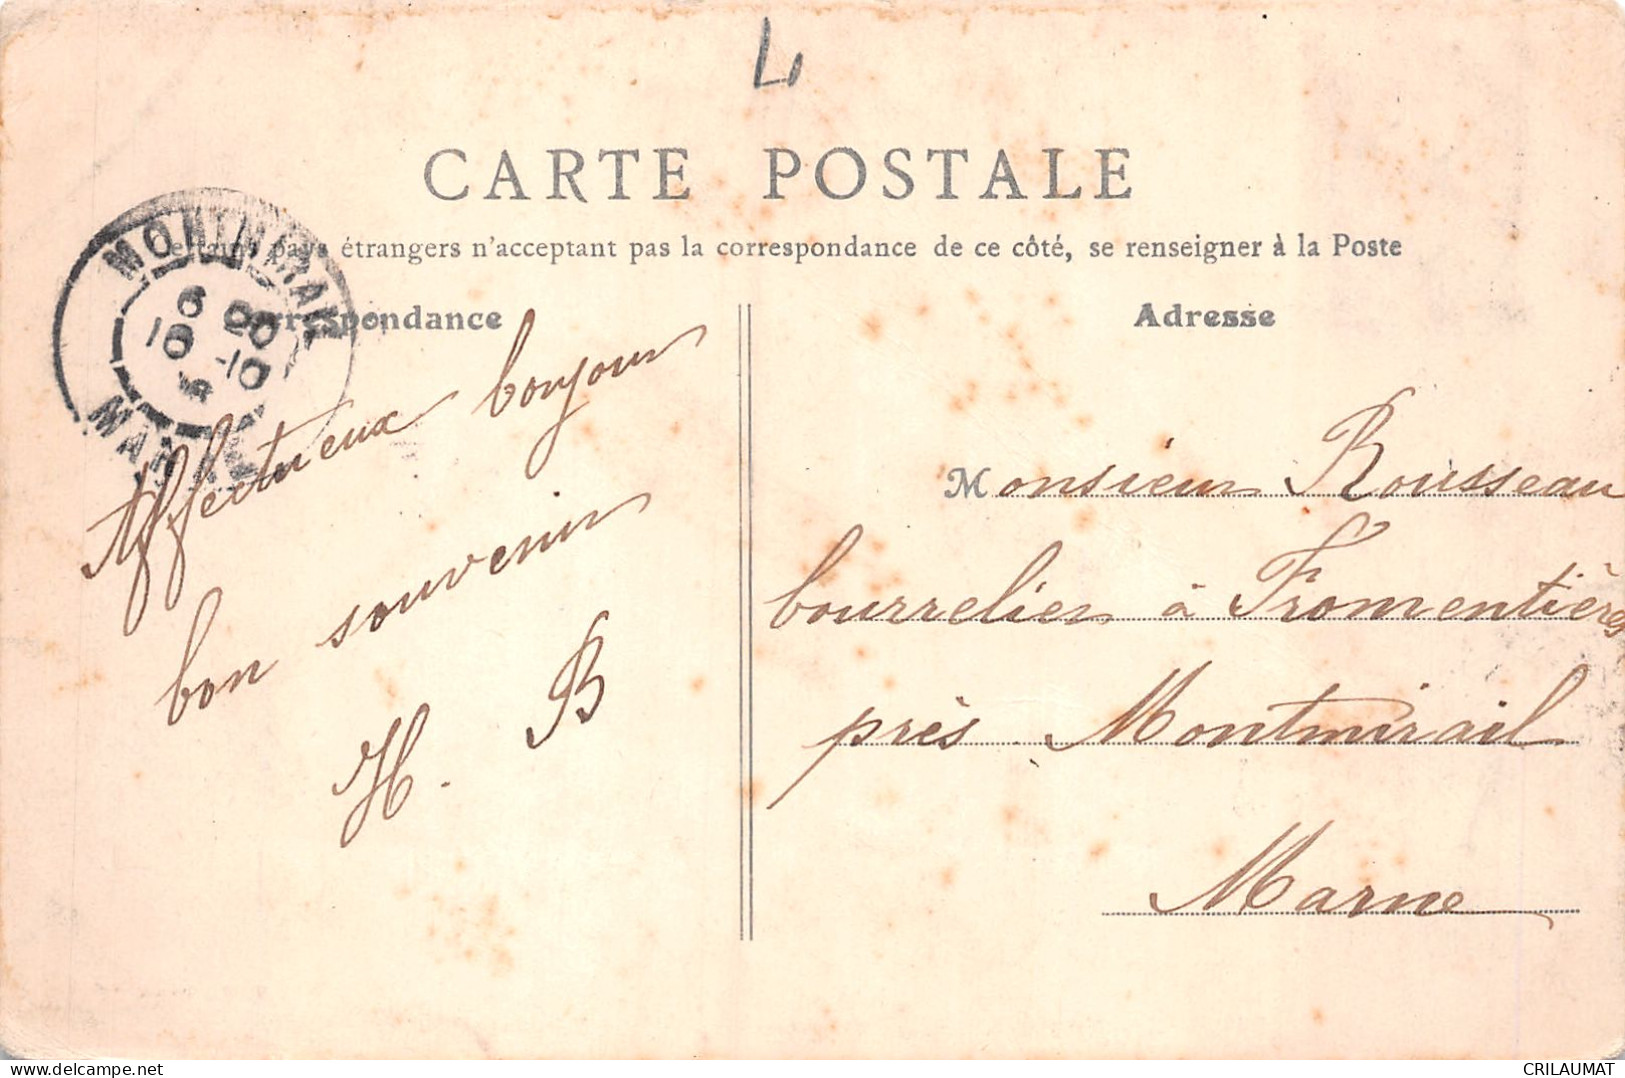 L
CARTE POSTALE
Certains pays étrangers n'acceptant pas la correspondance de ce côté, se renseigner à la Poste
Correspondance
Adresse
MONTMIRAIL
MARNE
Affectueux bonjour
bon souvenir
H. B
Monsieur Rousseau
bourrelier à Fromentières
près Montmirail
Marne
delcampe.net
CRILAUMAT